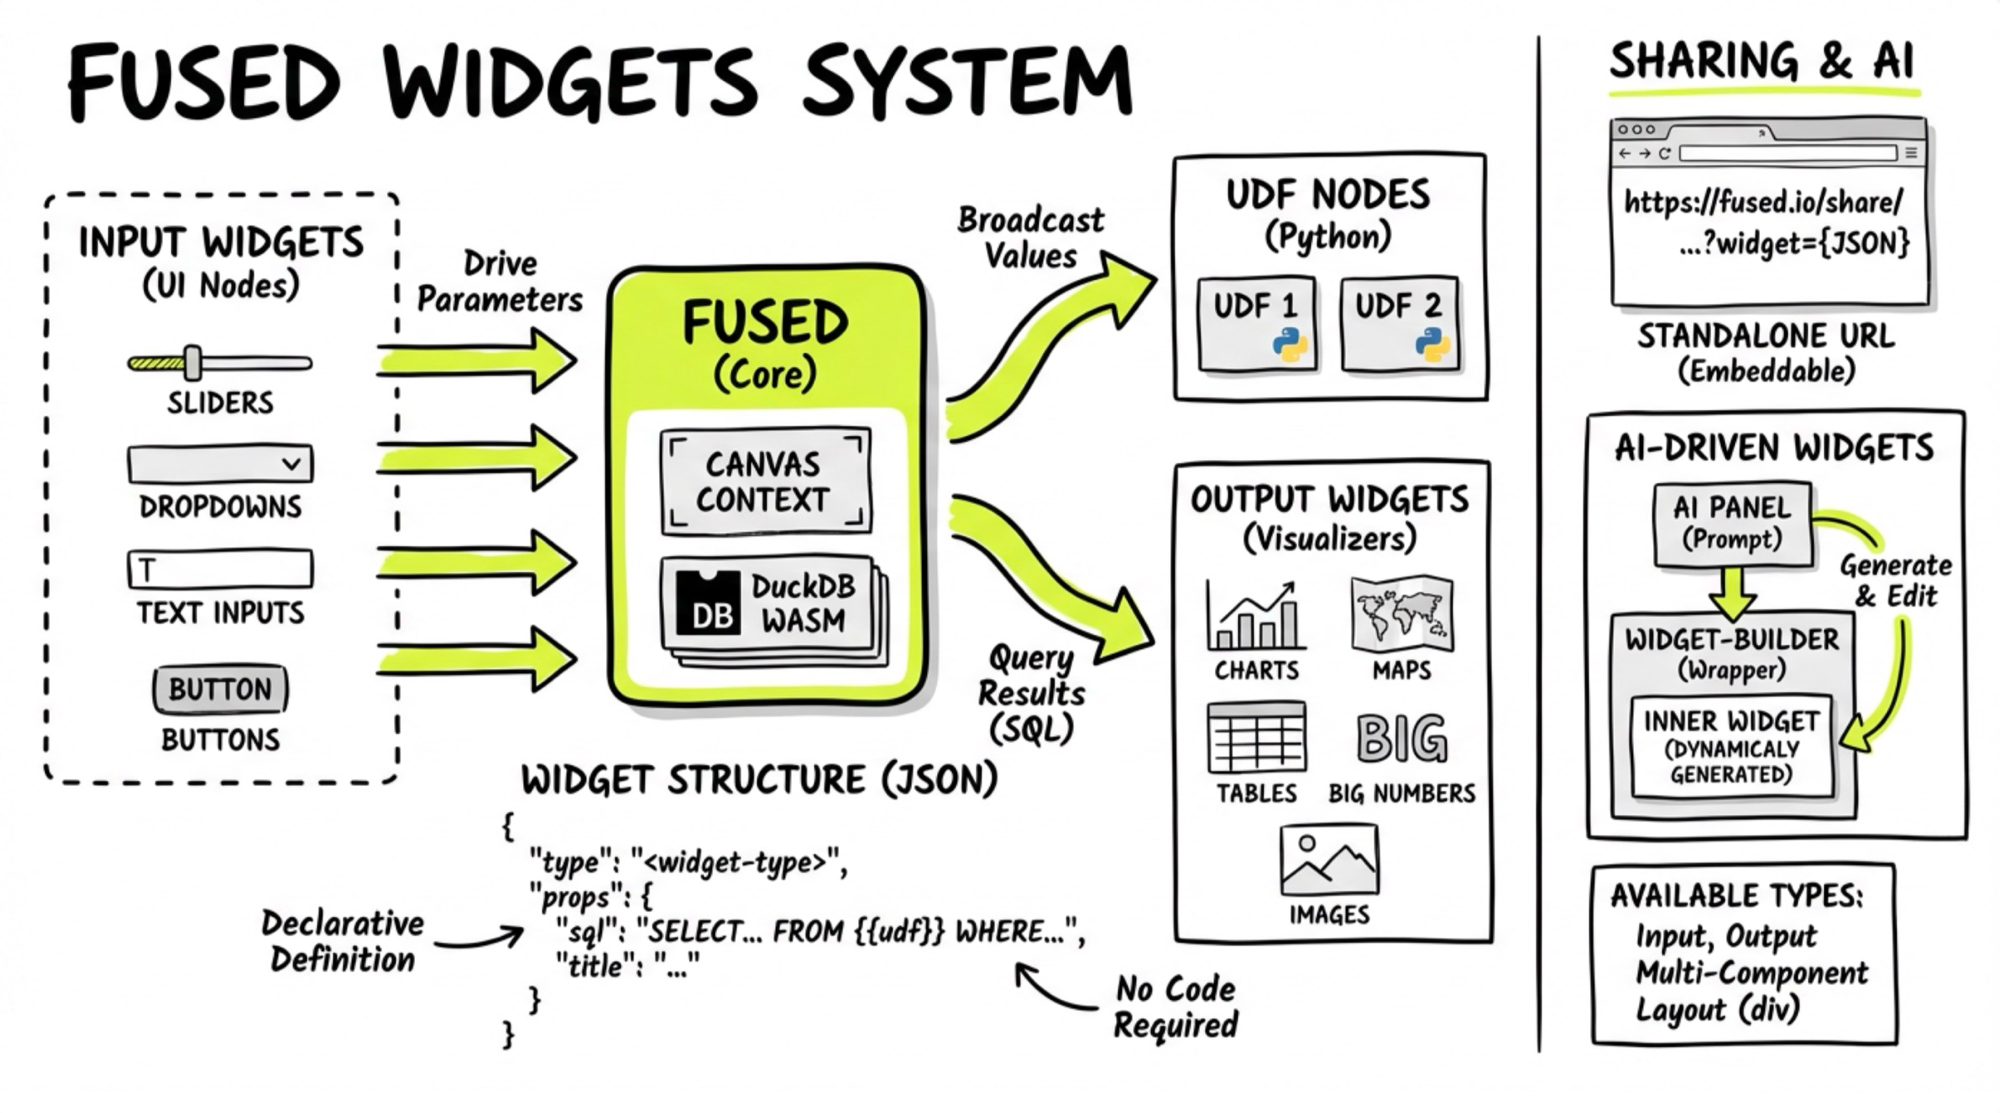 FUSED WIDGETS SYSTEM
INPUT WIDGETS
(UI Nodes)
SLIDERS
DROPDOWNS
T
TEXT INPUTS
BUTTON
BUTTONS
Drive
Parameters
FUSED
(Core)
CANVAS
CONTEXT
DB
DuckDB
WASM
Broadcast
Values
Query
Results
(SQL)
UDF NODES
(Python)
UDF 1
UDF 2
OUTPUT WIDGETS
(Visualizers)
CHARTS
MAPS
TABLES
BIG
BIG NUMBERS
IMAGES
WIDGET STRUCTURE (JSON)
{
"type": "<widget-type>",
"props": {
"sql": "SELECT... FROM {{udf}} WHERE...",
"title": "..."
}
}
Declarative
Definition
No Code
Required
SHARING & AI
https://fused.io/share/
...?widget={JSON}
STANDALONE URL
(Embeddable)
AI-DRIVEN WIDGETS
AI PANEL
(Prompt)
Generate
& Edit
WIDGET-BUILDER
(Wrapper)
INNER WIDGET
(DYNAMICALY
GENERATED)
AVAILABLE TYPES:
Input, Output
Multi-Component
Layout (div)